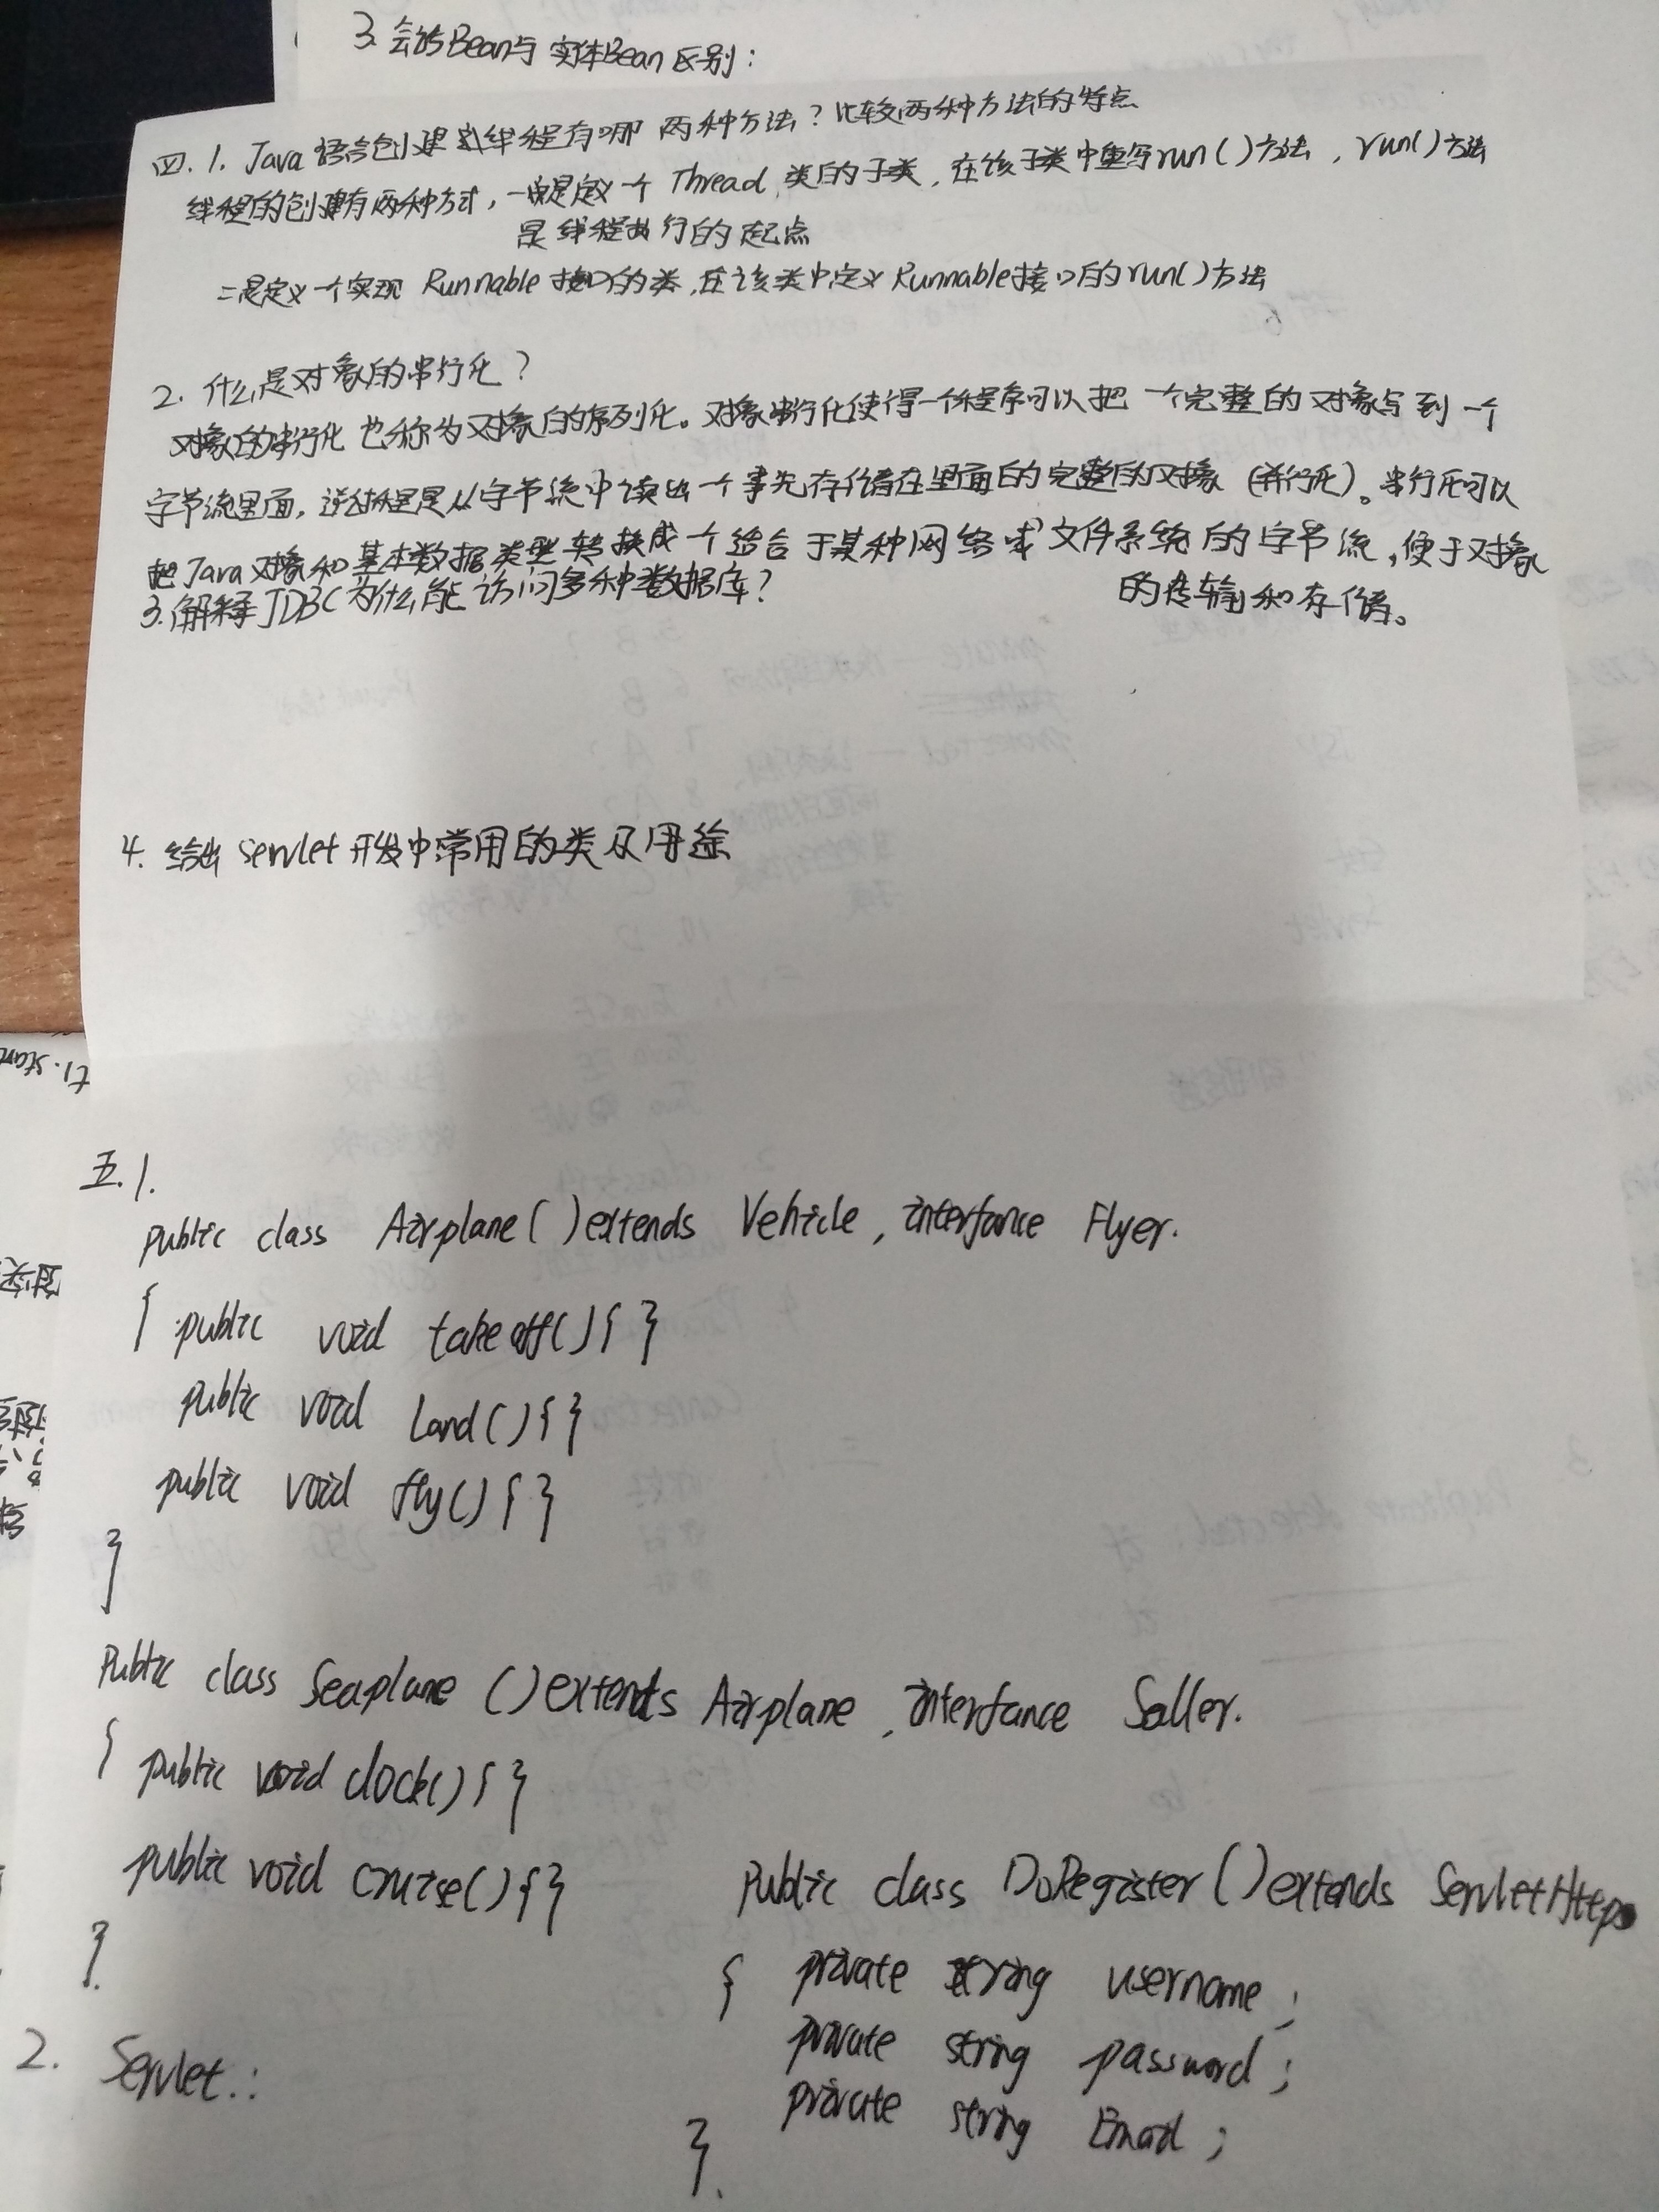 3. 会话Bean与实体Bean区别：
四.1. Java 语言创建线程有哪两种方法？比较两种方法的特点
线程的创建有两种方式，一是定义一个 Thread 类的子类，在该子类中重写run()方法，run()方法
是线程执行的起点
二是定义一个实现 Runnable 接口的类，在该类中定义Runnable接口的run()方法
2. 什么是对象的串行化？
对象的串行化也称为对象的序列化。对象串行化使得一个程序可以把一个完整的对象写到一个
字节流里面，逆过程是从字节流中读出一个事先存储在里面的完整的对象（并行化）。串行化可以
把Java对象和基本数据类型转换成一个适合于某种网络或文件系统的字节流，便于对象
的传输和存储。
3. 解释JDBC为什么能访问多种数据库？
4. 给出 servlet 开发中常用的类及用途
五.1.
public class Airplane()extends Vehicle, interfance Flyer.
{ public void takeoff(){ }
public void Land(){ }
public void fly(){ }
}
Public class Seaplane ()extends Airplane, interfance Saller.
{ public void clock(){ }
public void cruise(){ }
}.
2. Servlet.:
Public class DoRegister()extends ServletHttp
{ private string username;
private string password;
private string Email;
}.